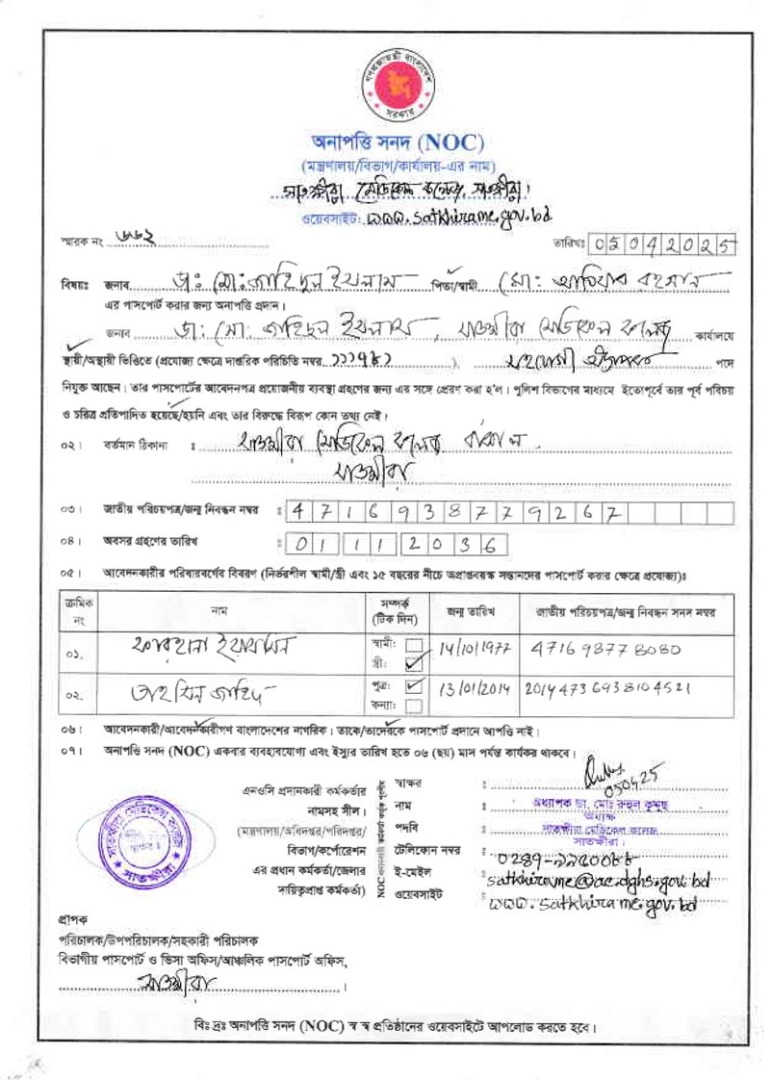 গণপ্রজাতন্ত্রী বাংলাদেশ
সরকার
অনাপত্তি সনদ (NOC)
(মন্ত্রণালয়/বিভাগ/কার্যালয়-এর নাম)
সাতক্ষীরা মেডিকেল কলেজ, সাতক্ষীরা।
ওয়েবসাইট: www.satkhiramc.gov.bd
স্মারক নং ৬৬২ তারিখঃ 05042025
বিষয়ঃ জনাব ডাঃ মোঃ জাহিদুল ইসলাম পিতা/স্বামী মোঃ রহমান
এর পাসপোর্ট করার জন্য অনাপত্তি প্রদান।
জনাব ডাঃ মোঃ জাহিদুল ইসলাম, সাতক্ষীরা মেডিকেল কলেজ কার্যালয়ে
স্থায়ী/অস্থায়ী ভিত্তিতে (প্রযোজ্য ক্ষেত্রে দাপ্তরিক পরিচিতি নম্বর ১১১৭৪১) সহযোগী অধ্যাপক পদে
নিযুক্ত আছেন। তার পাসপোর্টের আবেদনপত্র প্রয়োজনীয় ব্যবস্থা গ্রহণের জন্য এর সঙ্গে প্রেরণ করা হ'ল। পুলিশ বিভাগের মাধ্যমে ইতোপূর্বে তার পূর্ব পরিচয়
ও চরিত্র প্রতিপাদিত হয়েছে/হয়নি এবং তার বিরুদ্ধে বিরূপ কোন তথ্য নেই।
০২। বর্তমান ঠিকানা : সাতক্ষীরা মেডিকেল কলেজ বাকাল
সাতক্ষীরা
০৩। জাতীয় পরিচয়পত্র/জন্ম নিবন্ধন নম্বর : 4716938779267
০৪। অবসর গ্রহণের তারিখ : 01112036
০৫। আবেদনকারীর পরিবারবর্গের বিবরণ (নির্ভরশীল স্বামী/স্ত্রী এবং ১৫ বছরের নীচে অপ্রাপ্তবয়স্ক সন্তানদের পাসপোর্ট করার ক্ষেত্রে প্রযোজ্য)ঃ
ক্রমিক নং নাম সম্পর্ক (টিক দিন) জন্ম তারিখ জাতীয় পরিচয়পত্র/জন্ম নিবন্ধন সনদ নম্বর
০১. ফারহানা ইয়াসমিন স্বামী: স্ত্রী: ✓ 14/10/1977 4716 9877 8080
০২. তাহসিন জাহিদ পুত্র: ✓ কন্যা: 13/01/2014 20144736938104521
০৬। আবেদনকারী/আবেদনকারীগণ বাংলাদেশের নাগরিক। তাকে/তাদেরকে পাসপোর্ট প্রদানে আপত্তি নাই।
০৭। অনাপত্তি সনদ (NOC) একবার ব্যবহারযোগ্য এবং ইস্যুর তারিখ হতে ০৬ (ছয়) মাস পর্যন্ত কার্যকর থাকবে।
এনওসি প্রদানকারী কর্মকর্তার
নামসহ সীল।
(মন্ত্রণালয়/অধিদপ্তর/পরিদপ্তর/
বিভাগ/কর্পোরেশন
এর প্রধান কর্মকর্তা/জেলার
দায়িত্বপ্রাপ্ত কর্মকর্তা)
স্বাক্ষর : 050425
নাম : অধ্যাপক ডা. মোঃ রুহুল কুদ্দুছ
পদবি : অধ্যক্ষ
সাতক্ষীরা মেডিকেল কলেজ
সাতক্ষীরা।
টেলিফোন নম্বর :
ই-মেইল : satkhiramc@ac.dghs.gov.bd
ওয়েবসাইট : www.satkhiramc.gov.bd
সাতক্ষীরা মেডিকেল কলেজ
সাতক্ষীরা
প্রাপক
পরিচালক/উপপরিচালক/সহকারী পরিচালক
বিভাগীয় পাসপোর্ট ও ভিসা অফিস/আঞ্চলিক পাসপোর্ট অফিস,
সাতক্ষীরা।
বিঃ দ্রঃ অনাপত্তি সনদ (NOC) স্ব স্ব প্রতিষ্ঠানের ওয়েবসাইটে আপলোড করতে হবে।